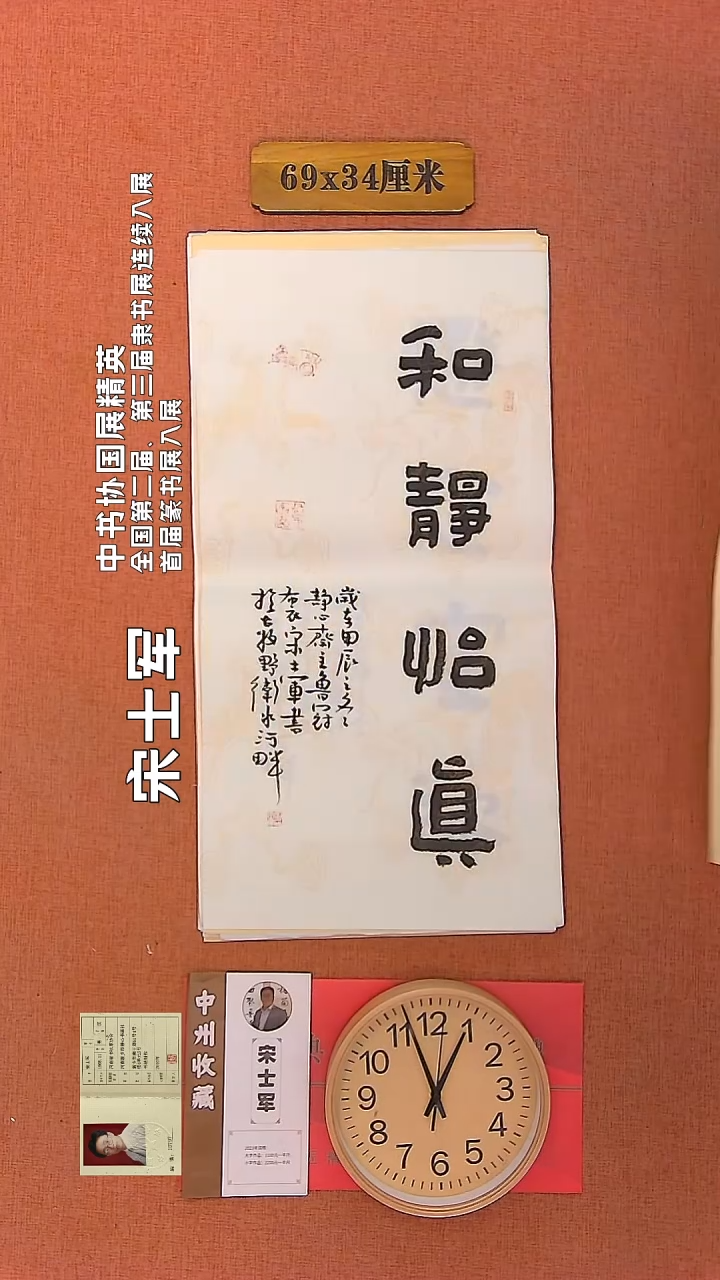 69x34厘米
中书协国展精英
全国第二届、第三届隶书展连续入展
首届篆书展入展
宋士军
和静怡真
歲在甲辰之冬
静心齋主魯冠
布衣宋士軍書
於古牧野衛水河畔
宋士军
11 12 1
10 2
9 3
8 4
7 6 5